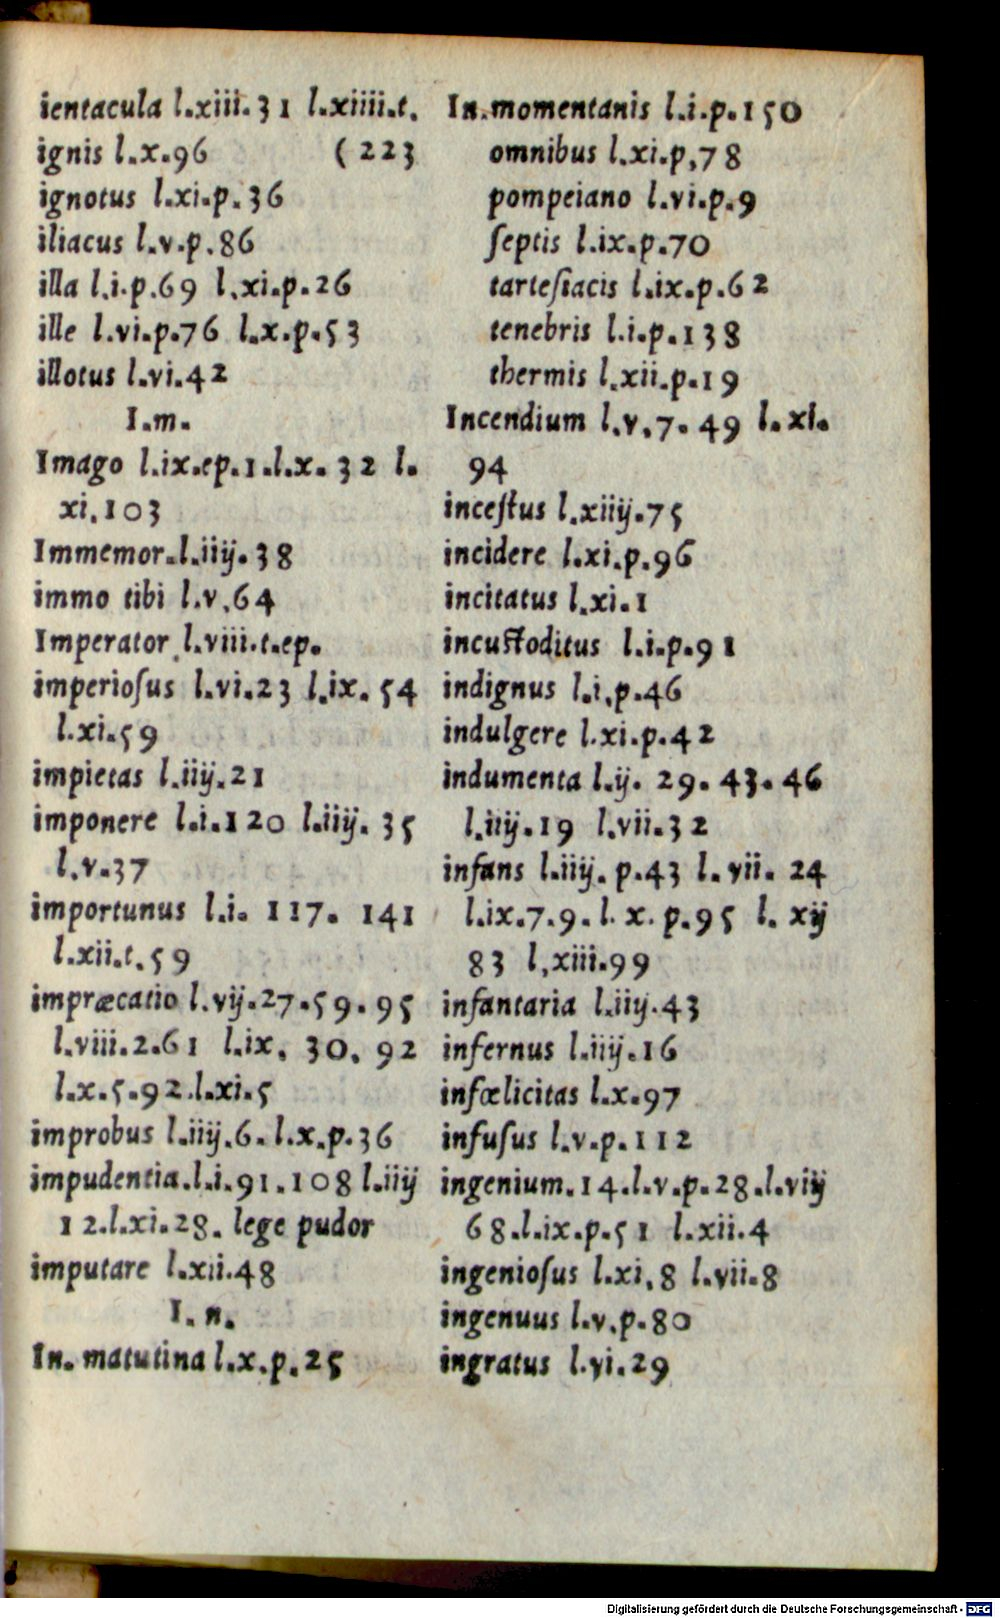 ientacula l.xiii.31 l.xiiii.t.
ignis l.x.96 (223
ignotus l.xi.p.36
iliacus l.v.p.86
illa l.i.p.69 l.xi.p.26
ille l.vi.p.76 l.x.p.53
illotus l.vi.42
I.m.
Imago l.ix.ep.1.l.x.32 l.
xi.103
Immemor.l.iiij.38
immo tibi l.v.64
Imperator l.viii.t.ep.
imperioſus l.vi.23 l.ix.54
l.xi.59
impietas l.iiij.21
imponere l.i.120 l.iiij.35
l.v.37
importunus l.i.117.141
l.xii.t.59
impræcatio l.vij.27.59.95
l.viii.2.61 l.ix.30.92
l.x.5.92.l.xi.5
improbus l.iiij.6.l.x.p.36
impudentia.l.i.91.108 l.iiij
12.l.xi.28. lege pudor
imputare l.xii.48
I.n.
In. matutina l.x.p.25
In.momentanis l.i.p.150
omnibus l.xi.p,78
pompeiano l.vi.p.9
ſeptis l.ix.p.70
tarteſiacis l.ix.p.62
tenebris l.i.p.138
thermis l.xii.p.19
Incendium l.v.7.49 l.xi.
94
inceſtus l.xiiij.75
incidere l.xi.p.96
incitatus l.xi.1
incuſtoditus l.i.p.91
indignus l.i.p.46
indulgere l.xi.p.42
indumenta l.ij.29.43.46
l.iiij.19 l.vii.32
infans l.iiij.p.43 l.vii.24
l.ix.7.9.l.x.p.95 l.xij
83 l,xiii.99
infantaria l.iiij.43
infernus l.iiij.16
infœlicitas l.x.97
infuſus l.v.p.112
ingenium.14.l.v.p.28.l.viij
68.l.ix.p.51 l.xii.4
ingenioſus l.xi,8 l.vii.8
ingenuus l.v.p.80
ingratus l.vi.29
Digitalisierung gefördert durch die Deutsche Forschungsgemeinschaft - DFG